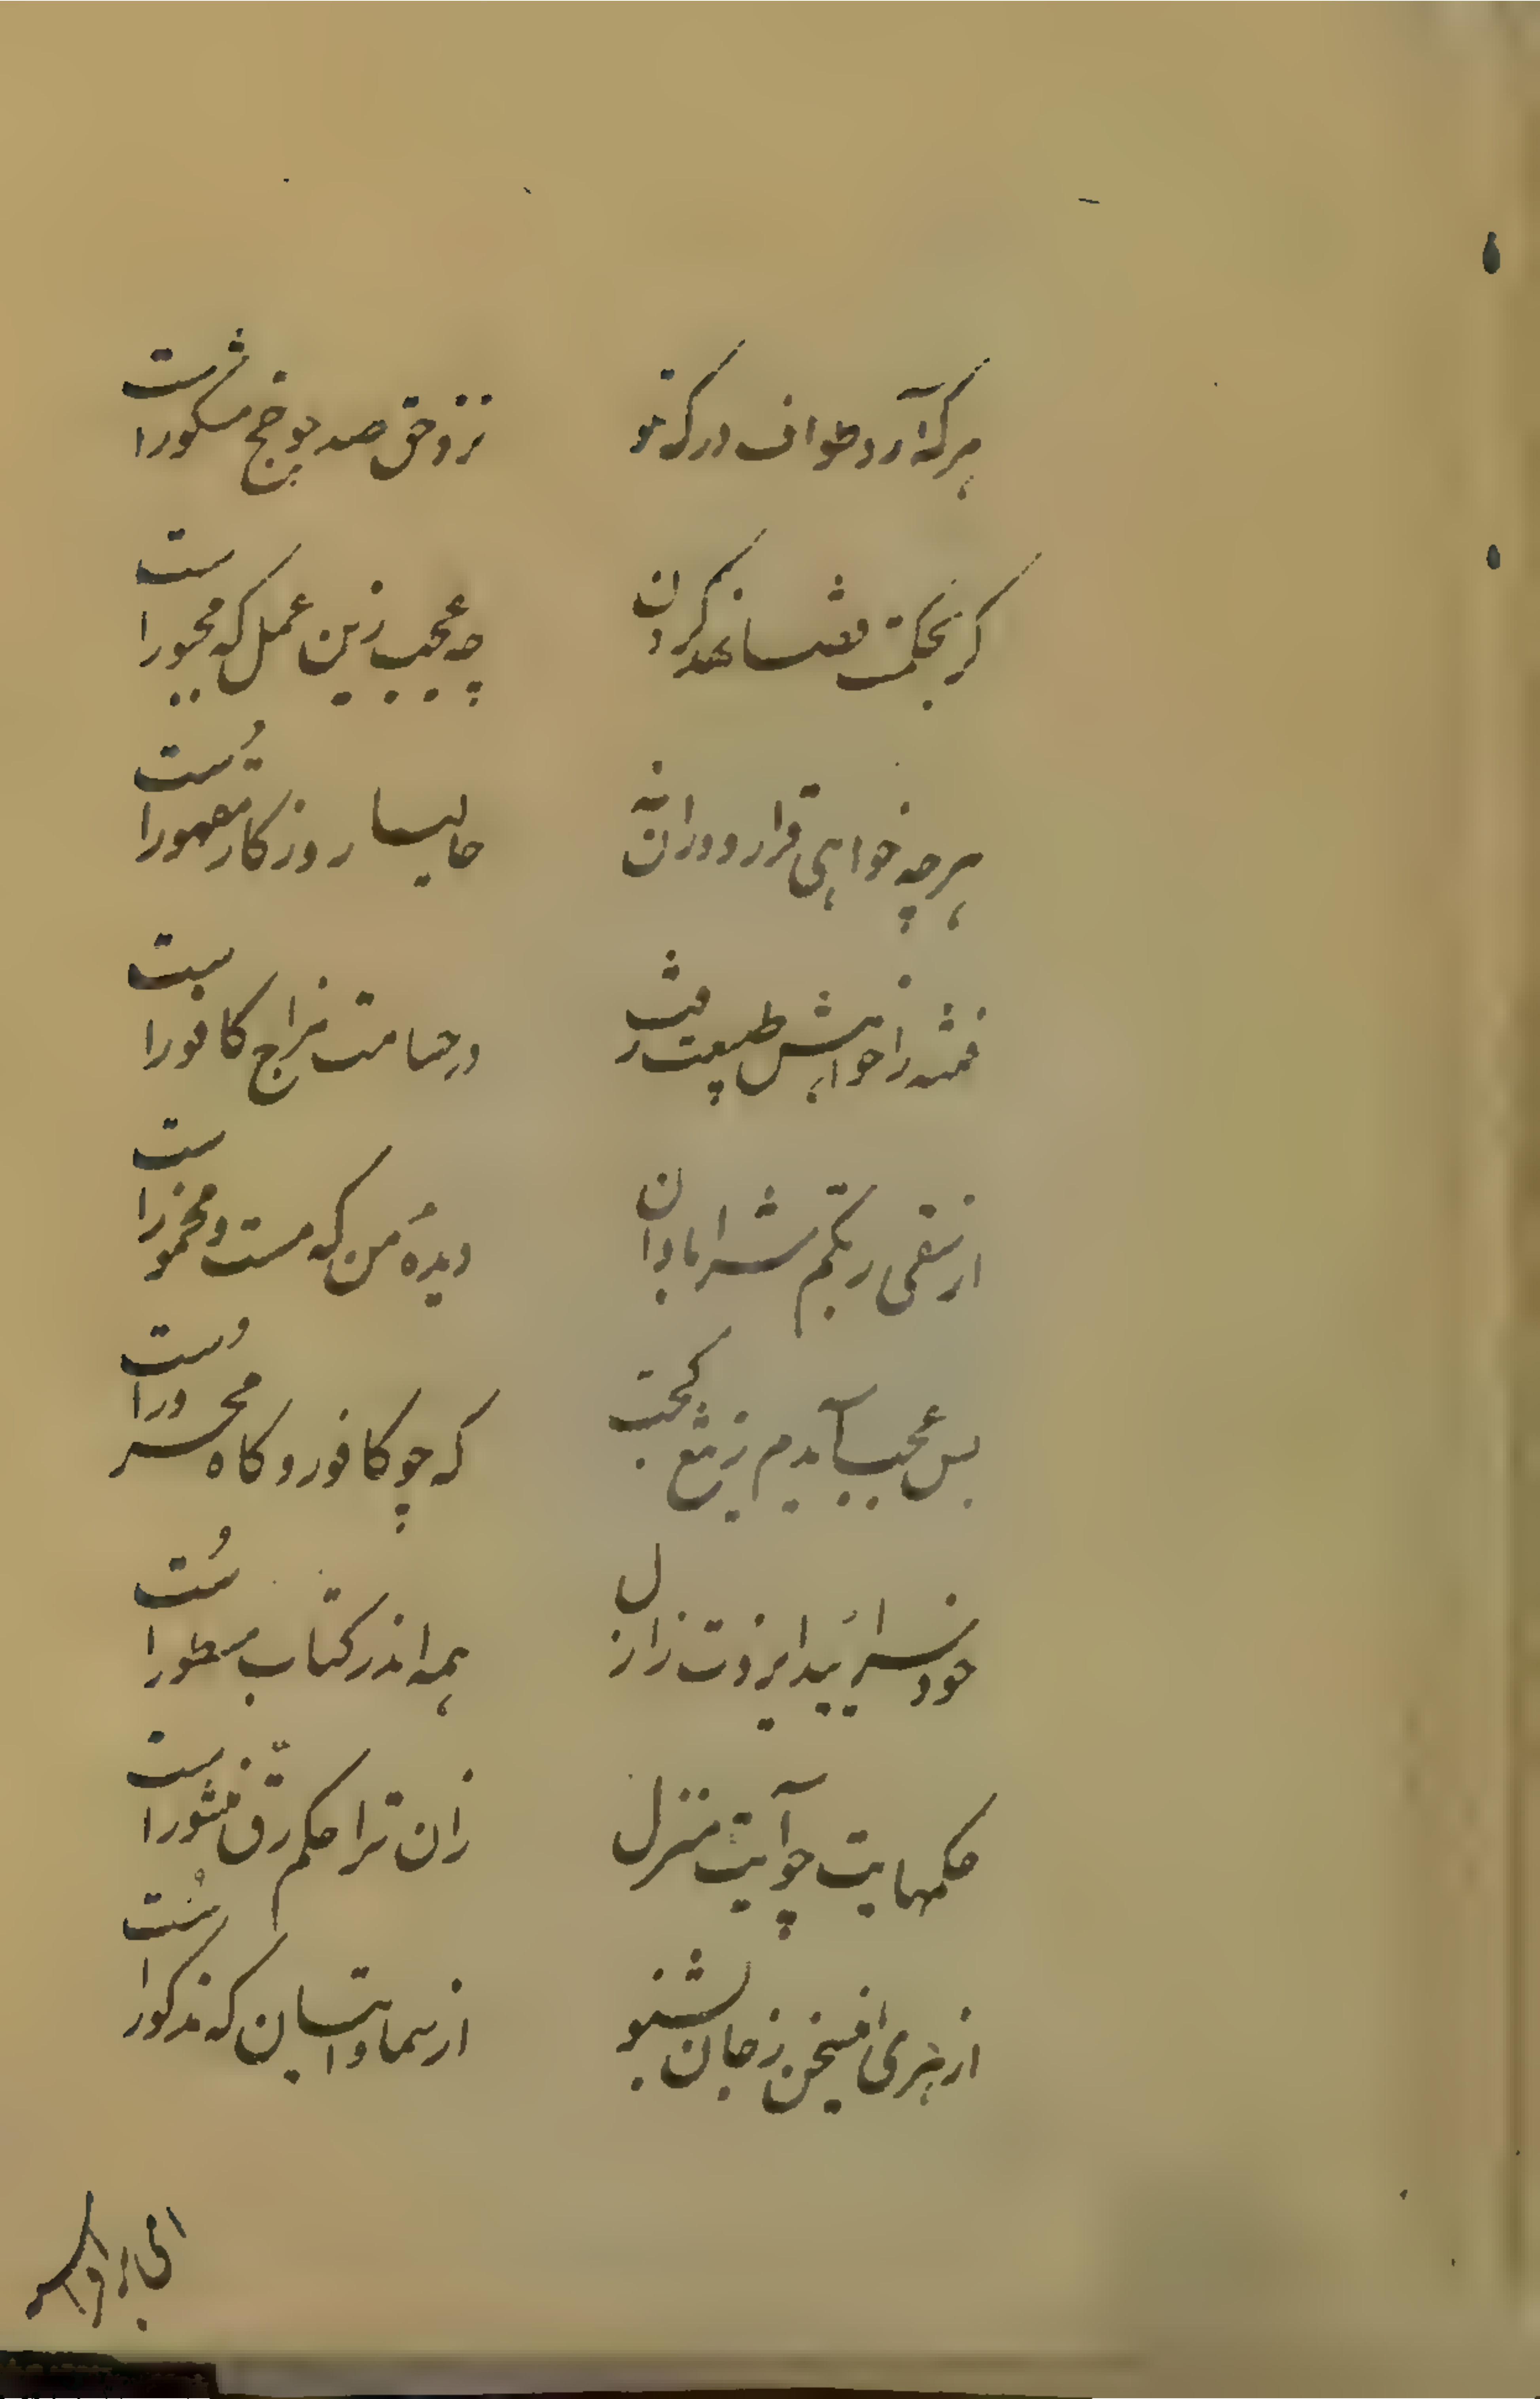 هر که آرد طواف درگه تو نزد حق صد چو حج مشکور است
گر بحکمت فشاند گردون چه عجب زین عمل که مجبور است
هر چه خواهی قرار دوران نه حالیا روزگار مقهور است
فتنه را خواهش طبیعت رفت در حسامت مزاج کافور است
از سقی ربکم شرابا دان دیدهٔ من که مست و مخمور است
بس عجب آیدم ز تیغ کجت که چو کافور و گاه محرور است
خود سراید ایزدت ز ازل همه اندر کتاب مسطور است
حکمهایت چو آیت منزل زان ترا حکم رق منشور است
از هری این سخن ز جان بشنو از سماواتیان که مذکور است